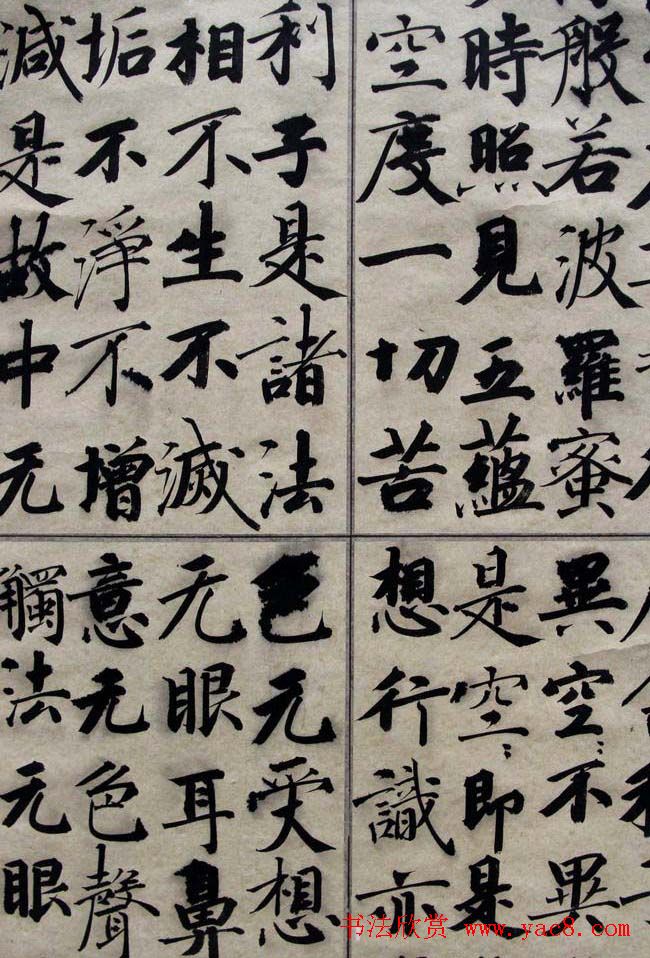 般若波羅蜜
時照見五蘊
空度一切苦
異空〻不異
是空〻即是
想行識亦
利子是諸法
相不生不滅
垢不淨不增
減是故中无
色无受想
无眼耳鼻
意无色聲
觸法无眼
书法欣赏 www.yac8.com